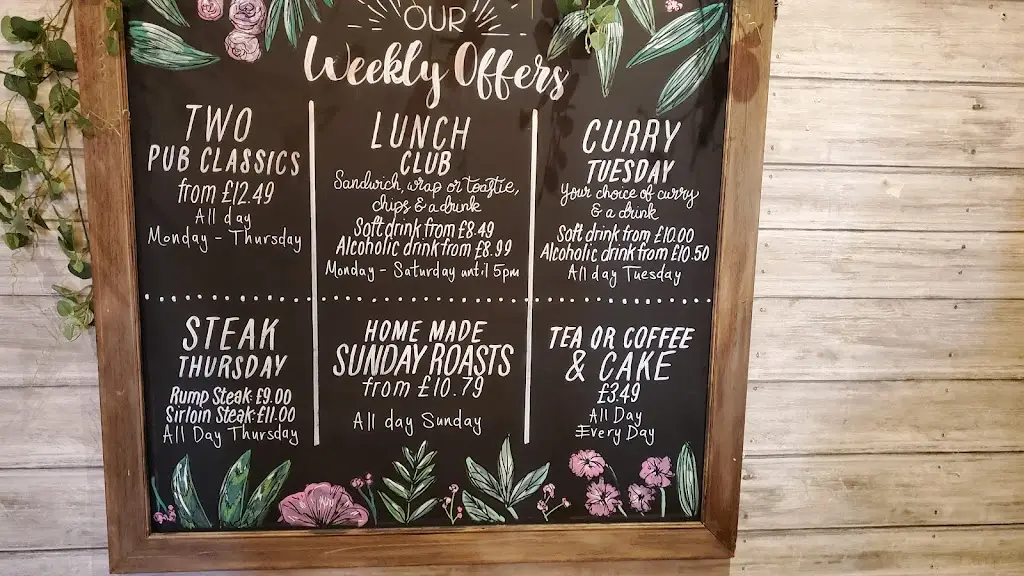 OUR
Weekly Offers
TWO
PUB CLASSICS
from £12.49
All day
Monday - Thursday
LUNCH
CLUB
Sandwich, wrap or toastie,
chips & a drink
Soft drink from £8.49
Alcoholic drink from £8.99
Monday - Saturday until 5pm
CURRY
TUESDAY
Your choice of curry
& a drink
Soft drink from £10.00
Alcoholic drink from £10.50
All day Tuesday
STEAK
THURSDAY
Rump Steak £9.00
Sirloin Steak £11.00
All Day Thursday
HOME MADE
SUNDAY ROASTS
from £10.79
All day Sunday
TEA OR COFFEE
& CAKE
£3.49
All Day
Every Day